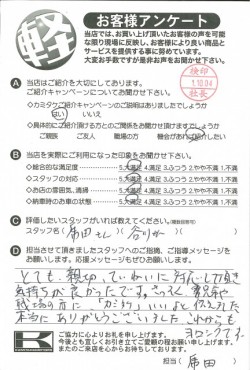 軽
お客様アンケート
当店では、お買い上げ頂いたお客様の声を可能
な限り現場に反映し、お客様により良い商品と
サービスを提供する事に努めています。
大変お手数ですが是非お声をお聞かせ下さい。
検印
1.10.04
社長
A 当店はご紹介を大切にしております。
ご紹介キャンペーンについてお聞かせ下さい。
・カミタケご紹介キャンペーンのご説明はありましたでしょうか
はい いいえ
・具体的にご紹介頂ける方とのご関係をお聞かせ頂けますでしょうか
ご親族 ご友人 職場の方 機会があれば紹介したい
B 当店を実際にご利用になった印象をお聞かせ下さい。
・総合的な満足度 5.大満足 4.満足 3.ふつう 2.やや不満 1.不満
・スタッフの対応 5.大満足 4.満足 3.ふつう 2.やや不満 1.不満
・お店の雰囲気、清掃 5.大満足 4.満足 3.ふつう 2.やや不満 1.不満
・納車時のお車の状態 5.大満足 4.満足 3.ふつう 2.やや不満 1.不満
C 評価したいスタッフがいれば教えてください。(複数回答可)
スタッフ名( 席田さん )( 谷川 )
D 担当させて頂きましたスタッフへのご指摘、ご応援メッセージを
お願いします。応援メッセージもぜひお願いします。
とても、親切、ていねいに対応して頂き
気持ちが良かったです。さっそく
職場の方に
本当にありがとうございました。これからも
ヨロシクです。
K
ご協力に心よりお礼を申し上げます。
今後とも宜しくお引き立てご愛顧の程お願い申し上げます。
またのご来店を心からお待ちしております。
担当( 席田 )